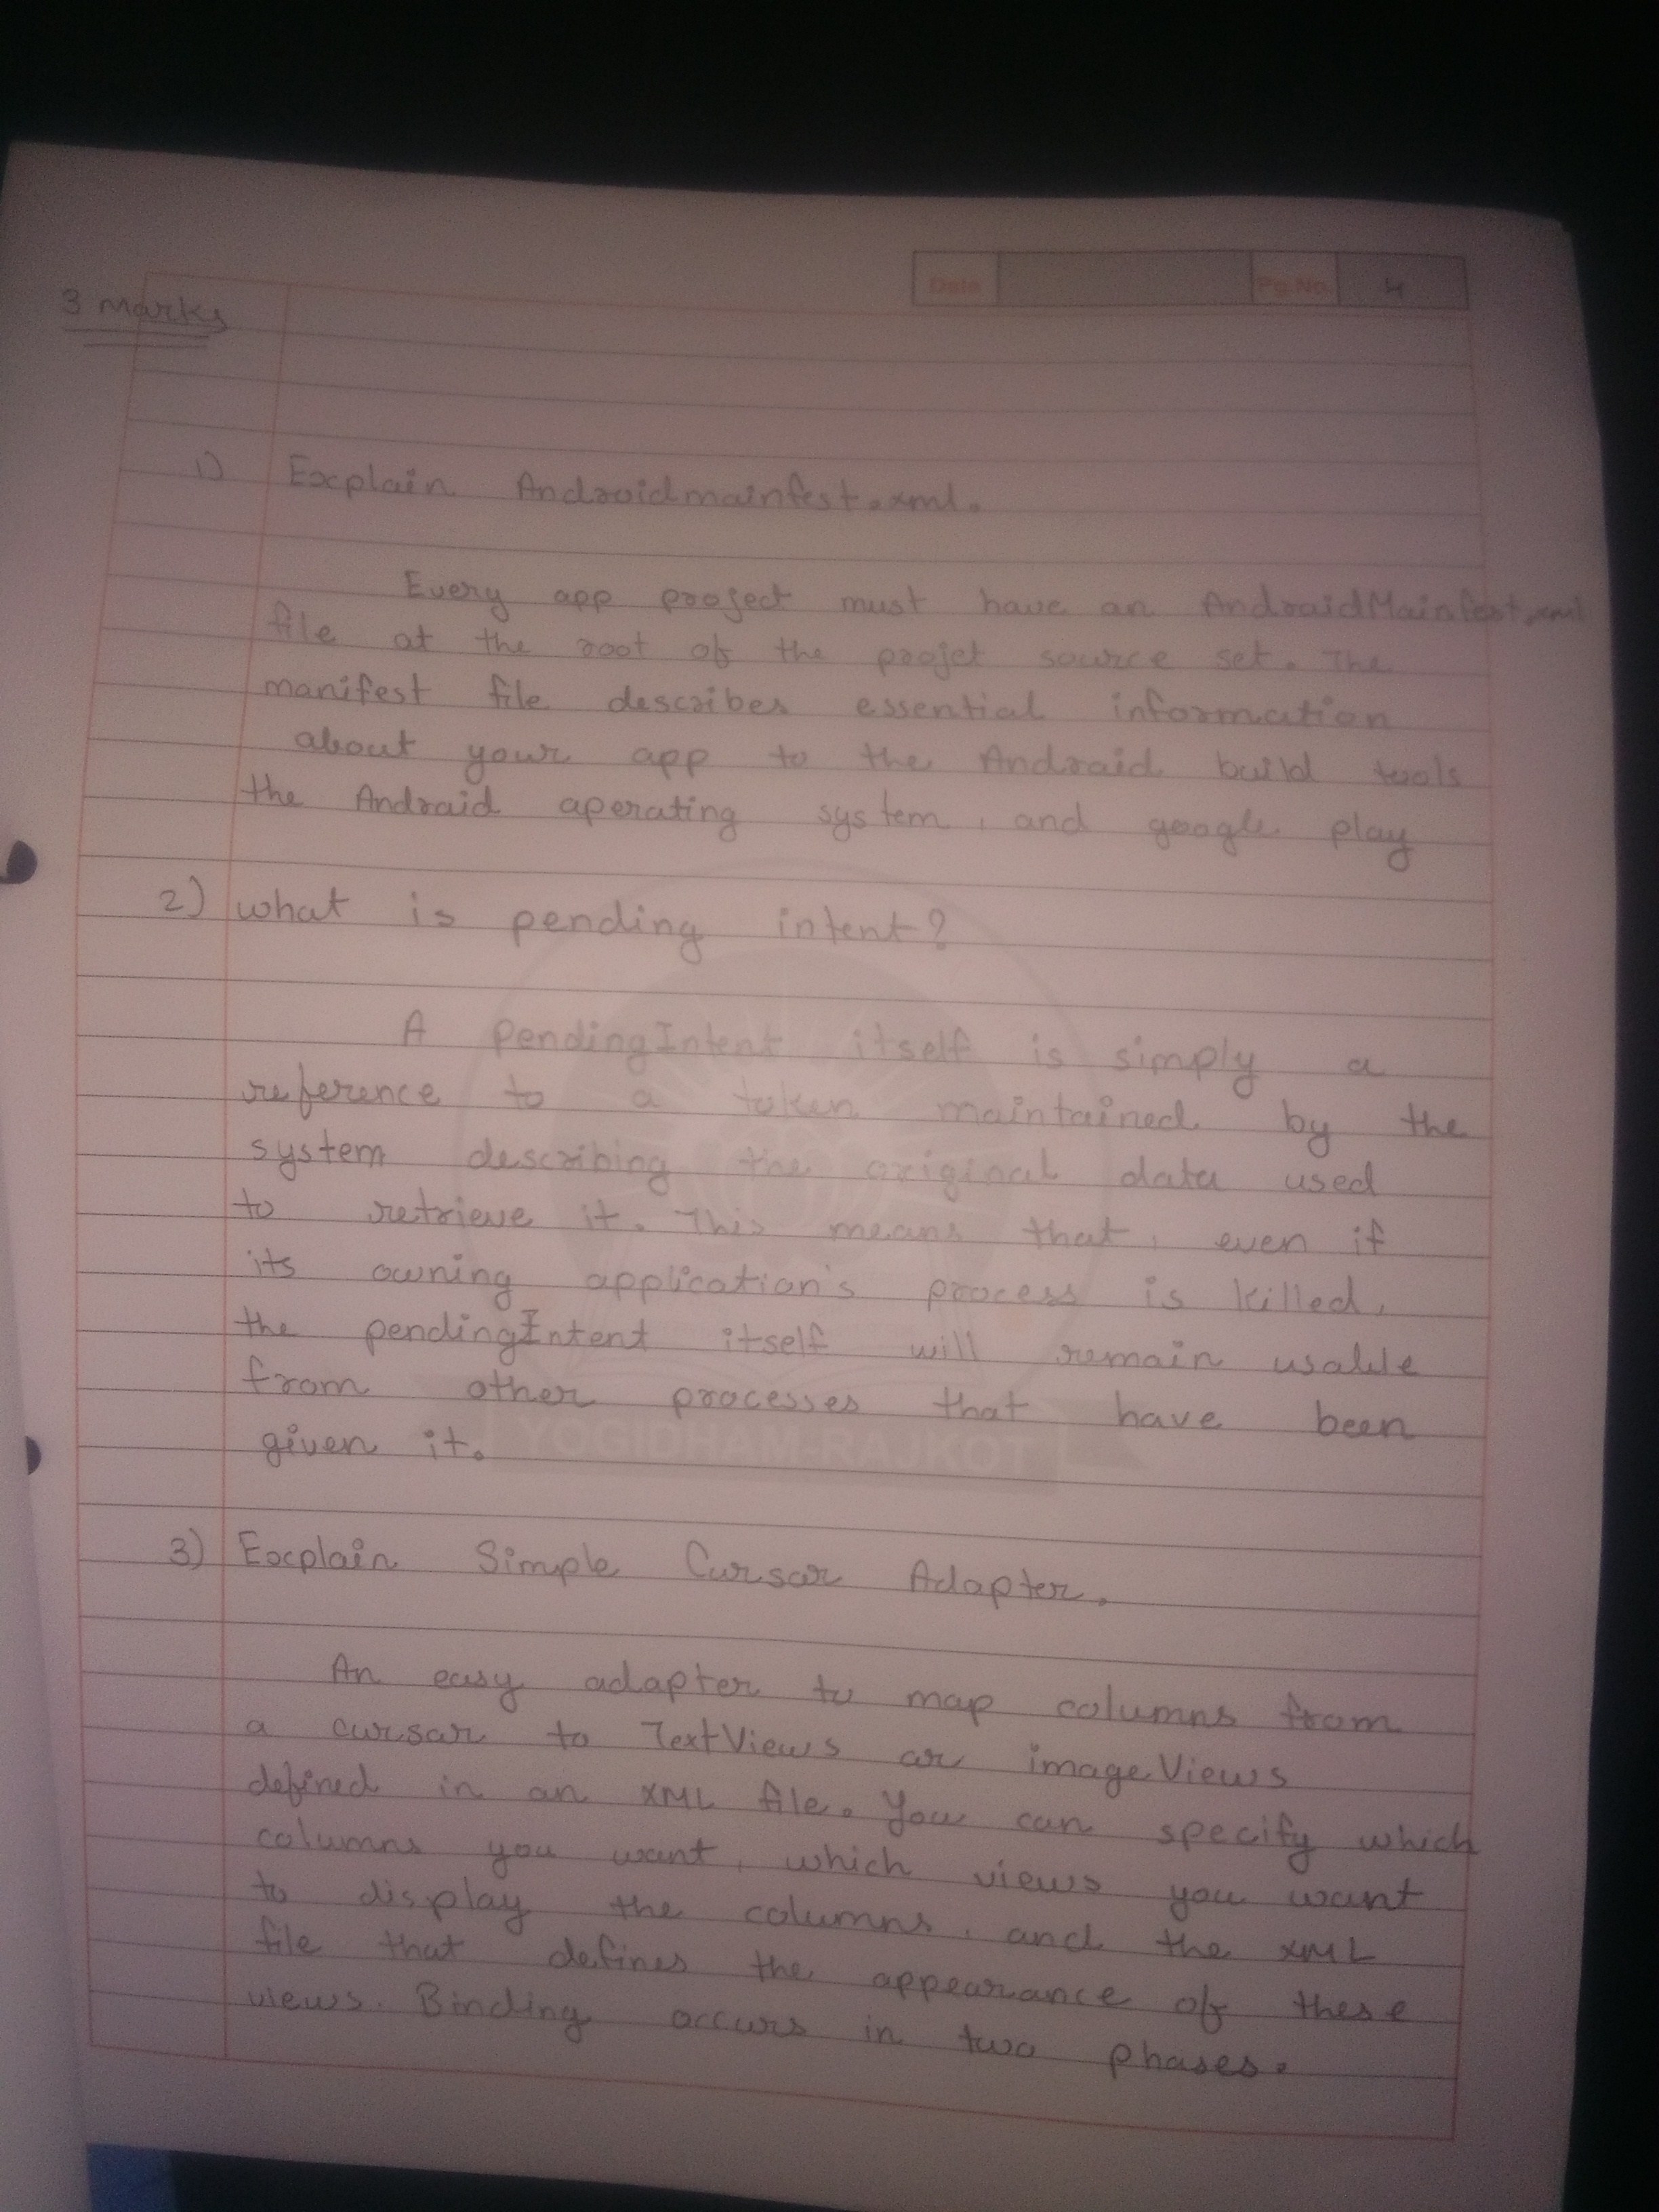 Date Pg.No. 4
3 Marks
1) Explain Androidmainfest.xml.
Every app project must have an AndroidMainfest.xml
file at the root of the projet source set. The
manifest file describes essential information
about your app to the Android build tools
the Android operating system, and google play
2) what is pending intent?
A pendingIntent itself is simply a
reference to a token maintained by the
system describing the original data used
to retrieve it. This means that, even if
its owning application's process is killed,
the pendingIntent itself will remain usable
from other processes that have been
given it.
YOGIDHAM-RAJKOT
3) Explain Simple Cursor Adapter.
An easy adapter to map columns from
a cursor to TextViews or imageViews
defined in an XML file. You can specify which
columns you want, which views you want
to display the columns, and the XML
file that defines the appearance of these
views. Binding occurs in two phases.